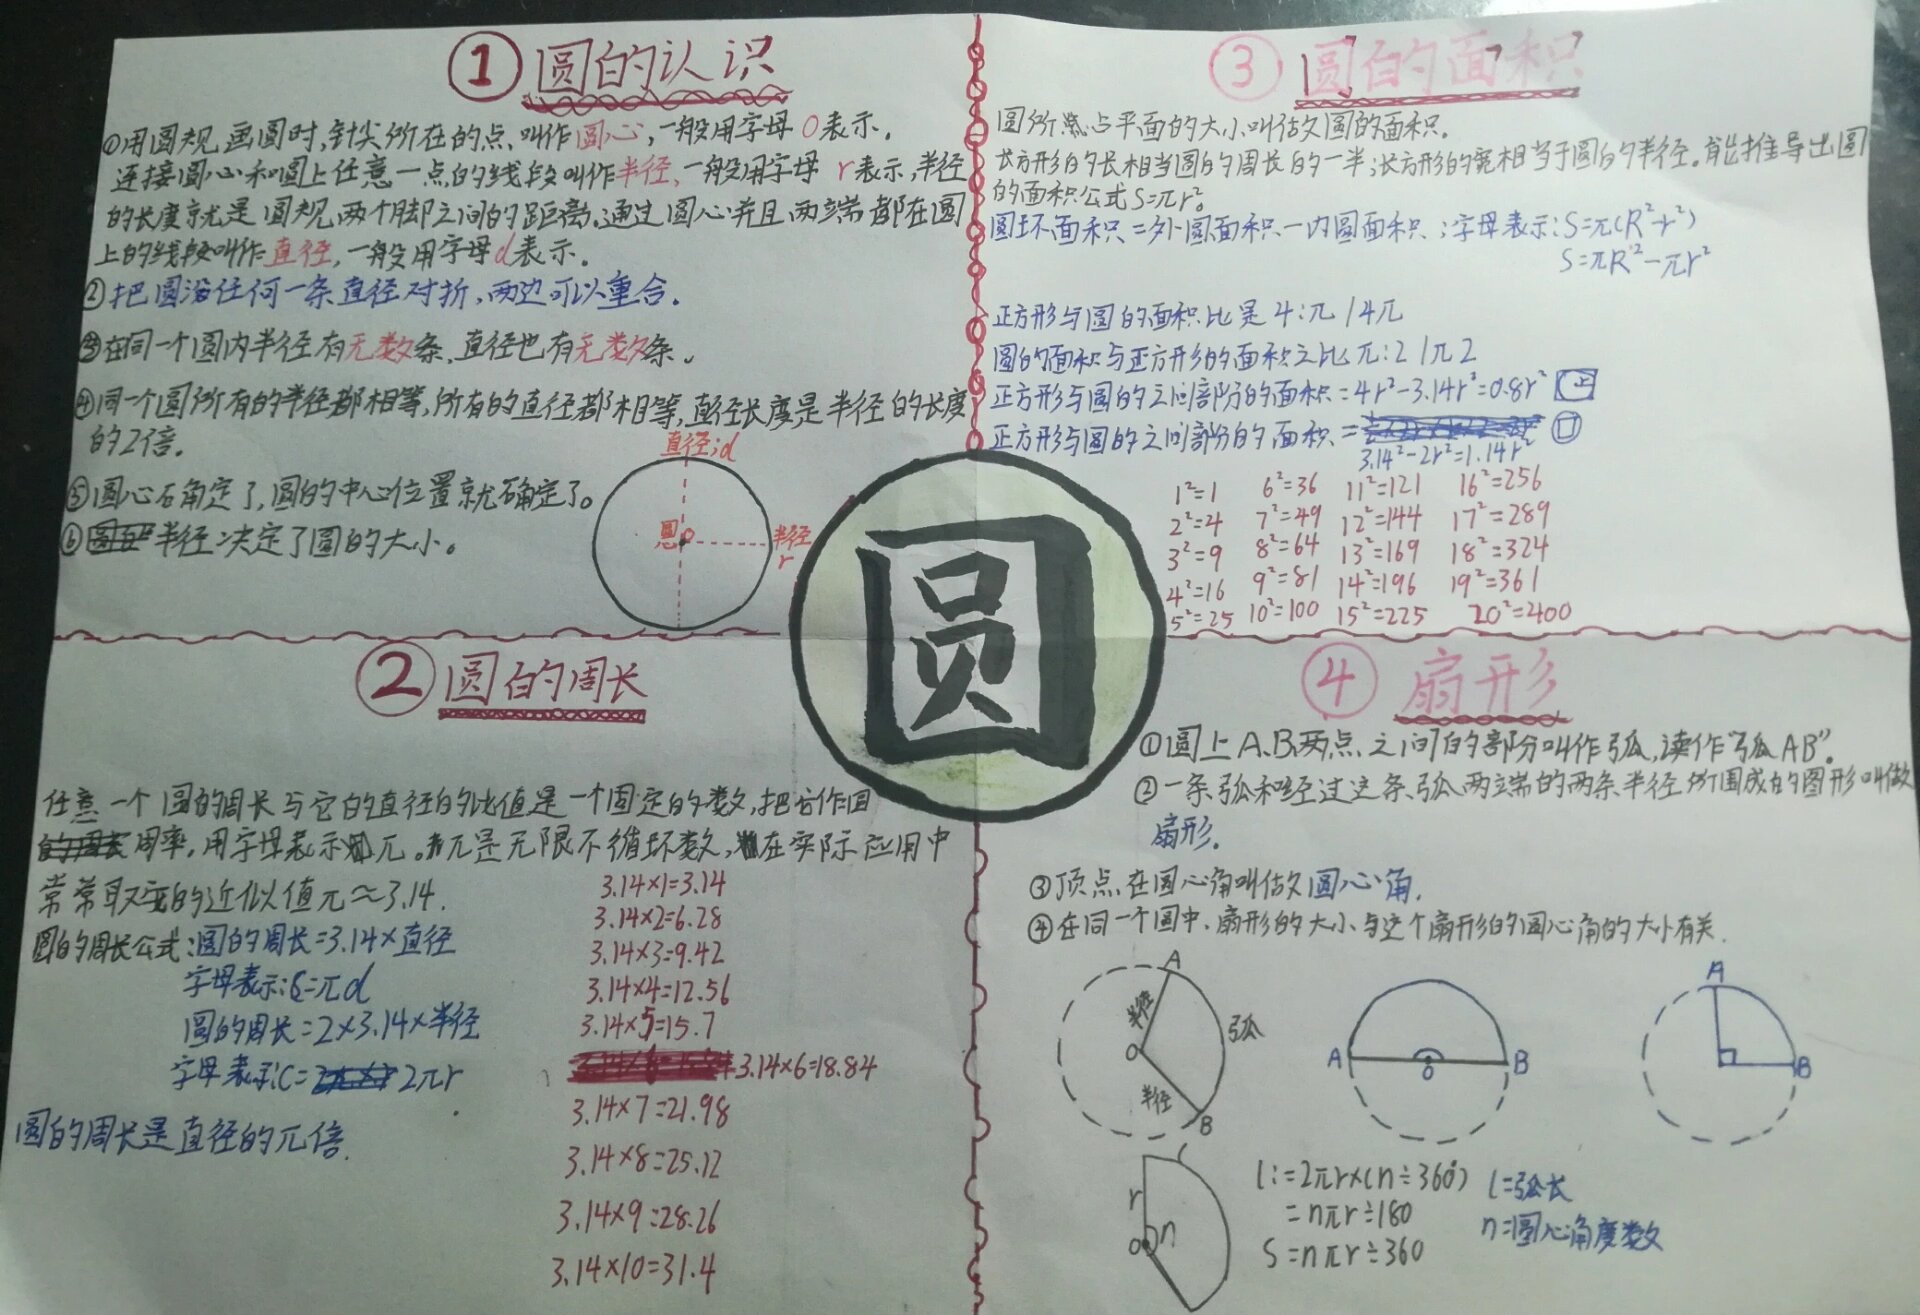 ① 圆的认识
①用圆规画圆时,针尖所在的点叫作圆心,一般用字母O表示.
连接圆心和圆上任意一点的线段叫作半径,一般用字母r表示,半径
的长度就是圆规两个脚之间的距离.通过圆心并且两端都在圆
上的线段叫作直径,一般用字母d表示.
②把圆沿任何一条直径对折,两边可以重合.
③在同一个圆内半径有无数条、直径也有无数条。
④同一个圆所有的半径都相等,所有的直径都相等,直径长度是半径的长度
的2倍.
⑤圆心确定了,圆的中心位置就确定了。
⑥半径决定了圆的大小。
直径:d
半径
r
② 圆的周长
任意一个圆的周长与它的直径的比值是一个固定的数,把它作圆
周率,用字母表示π。π是无限不循环数,在实际应用中
常常取的近似值π≈3.14.
圆的周长公式:圆的周长=3.14×直径
字母表示:C=πd
圆的周长=2×3.14×半径
字母表示:C=2πr
圆的周长是直径的π倍.
3.14×1=3.14
3.14×2=6.28
3.14×3=9.42
3.14×4=12.56
3.14×5=15.7
3.14×6=18.84
3.14×7=21.98
3.14×8=25.12
3.14×9=28.26
3.14×10=31.4
圆
③ 圆的面积
圆所占平面的大小叫做圆的面积.
长方形的长相当圆的周长的一半;长方形的宽相当于圆的半径。能推导出圆
的面积公式S=πr²。
圆环面积=外圆面积-内圆面积;字母表示:S=π(R²-r²)
S=πR²-πr²
正方形与圆的面积比是4:π/4π
圆的面积与正方形的面积之比π:2/π2
正方形与圆的之间部分的面积=4r²-3.14r²=0.8r²
正方形与圆的之间部分的面积=
3.14²-2r²=1.14r²
1²=1 6²=36 11²=121 16²=256
2²=4 7²=49 12²=144 17²=289
3²=9 8²=64 13²=169 18²=324
4²=16 9²=81 14²=196 19²=361
5²=25 10²=100 15²=225 20²=400
④ 扇形
①圆上A、B两点之间的部分叫作弧,读作"弧AB"。
②一条弧和经过这条弧两端的两条半径所围成的图形叫做
扇形.
③顶点在圆心角叫做圆心角.
④在同一个圆中,扇形的大小与这个扇形的圆心角的大小有关.
A
半径
O
弧
半径
B
A O B
A
B
r
O
n
l:=2πr×(n÷360°)
=nπr÷180
S=nπr÷360
l=弧长
n=圆心角度数